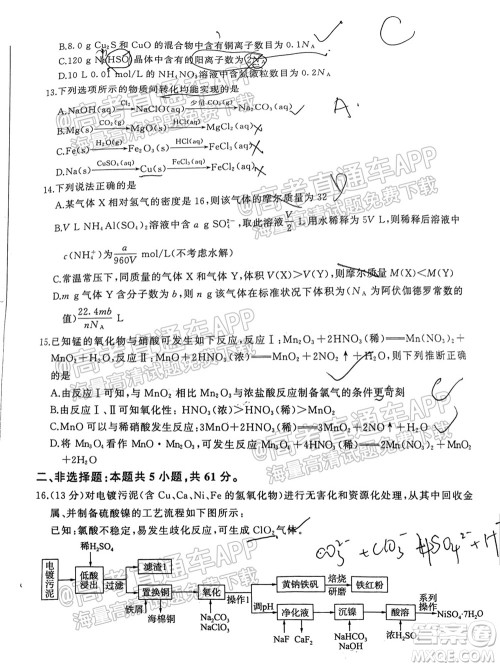 B.8.0 g Cu₂S 和 CuO 的混合物中含有铜离子数目为 0.1Nₐ
C.120 g NaHSO₄ 晶体中含有的阳离子数为 2Nₐ
D.10 L 0.01 mol/L 的 NH₄NO₃ 溶液中含氮微粒数目为
13.下列选项所示的物质间转化均能实现的是
A.NaOH(aq) —Cl₂(g)→ NaClO(aq) —少量CO₂(g)→ Na₂CO₃(aq)
B.Mg(s) —CO₂(g)→ MgO(s) —HCl(aq)→ MgCl₂(aq)
C.Fe(s) → Fe₂O₃(s) —HCl(aq)→ FeCl₃(aq)
D.Na(s) —CuSO₄(aq)→ Cu(s) —FeCl₃(aq)→ FeCl₂(aq)
A
C
14.下列说法正确的是
A.某气体 X 对相对氢气的密度是 16,则该气体的摩尔质量为 32
B.V L NH₄Al(SO₄)₂ 溶液中含 a g SO₄²⁻,取 V/2 L 用水稀释为 5V L,则稀释后溶液中
c(NH₄⁺)为 a/960V mol/L(不考虑水解)
C.常温常压下,同质量的气体 X 和气体 Y,体积比为 a:b,则摩尔质量
D.m g 气体 Y 含分子数为 n,则 b g 气体 Y 在标准状况下的体积(Nₐ 为阿伏伽德罗常数的
值) 22.4mb/nNₐ L
15.已知锰的氧化物与硝酸可发生如下反应,反应Ⅰ:Mn₂O₃+2HNO₃(稀)═Mn(NO₃)₂+
MnO₂+H₂O;反应Ⅱ:MnO+2HNO₃(浓)═MnO₂+2NO₂↑+H₂O。则下列推断正确
的是
A.由反应Ⅰ可知,MnO₂ 与浓盐酸反应制备氯气的条件更苛刻
B.由反应Ⅱ可知氧化性:HNO₃(浓)>MnO₂>HNO₃(稀)
C.MnO 可以与稀硝酸发生反应:3MnO+2HNO₃(稀)═3MnO₂+2NO↑+H₂O
二、非选择题:本题共 5 小题,共 61 分。
16.(13 分)对电镀污泥(含 Cu、Ca、Ni、Fe 的氢氧化物)进行无害化和资源化处理,从其中回收金
属、并制备硫酸镍的工艺流程如下图所示:
已知:氯酸不稳定,易发生歧化反应,可生成 ClO₂ 气体。
稀H₂SO₄
电镀污泥
低酸浸出
过滤
滤渣1
置换铜
海绵铜
氧化
NaClO₃
操作1
Na₂CO₃
Na₂SO₄
黄钠铁矾
焙烧
研磨
铁红粉
调pH
净化液
NaF
CaF₂
沉镍
Na₂CO₃
酸溶
H₂SO₄
系列
操作
NiSO₄·7H₂O
高考直通车APP
海量高清试题免费下载
答案圈